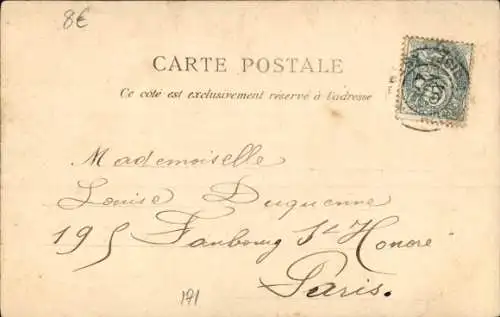 8€
CARTE POSTALE
Ce côté est exclusivement réservé à l'adresse
Mademoiselle
Louise Duquenne
195 Faubourg St Honoré
Paris.
171